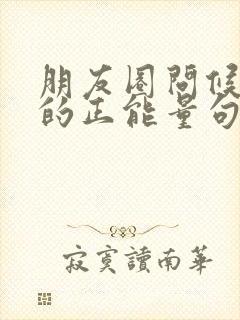 朋友圈問候
的正能量句
寂寞讀南華